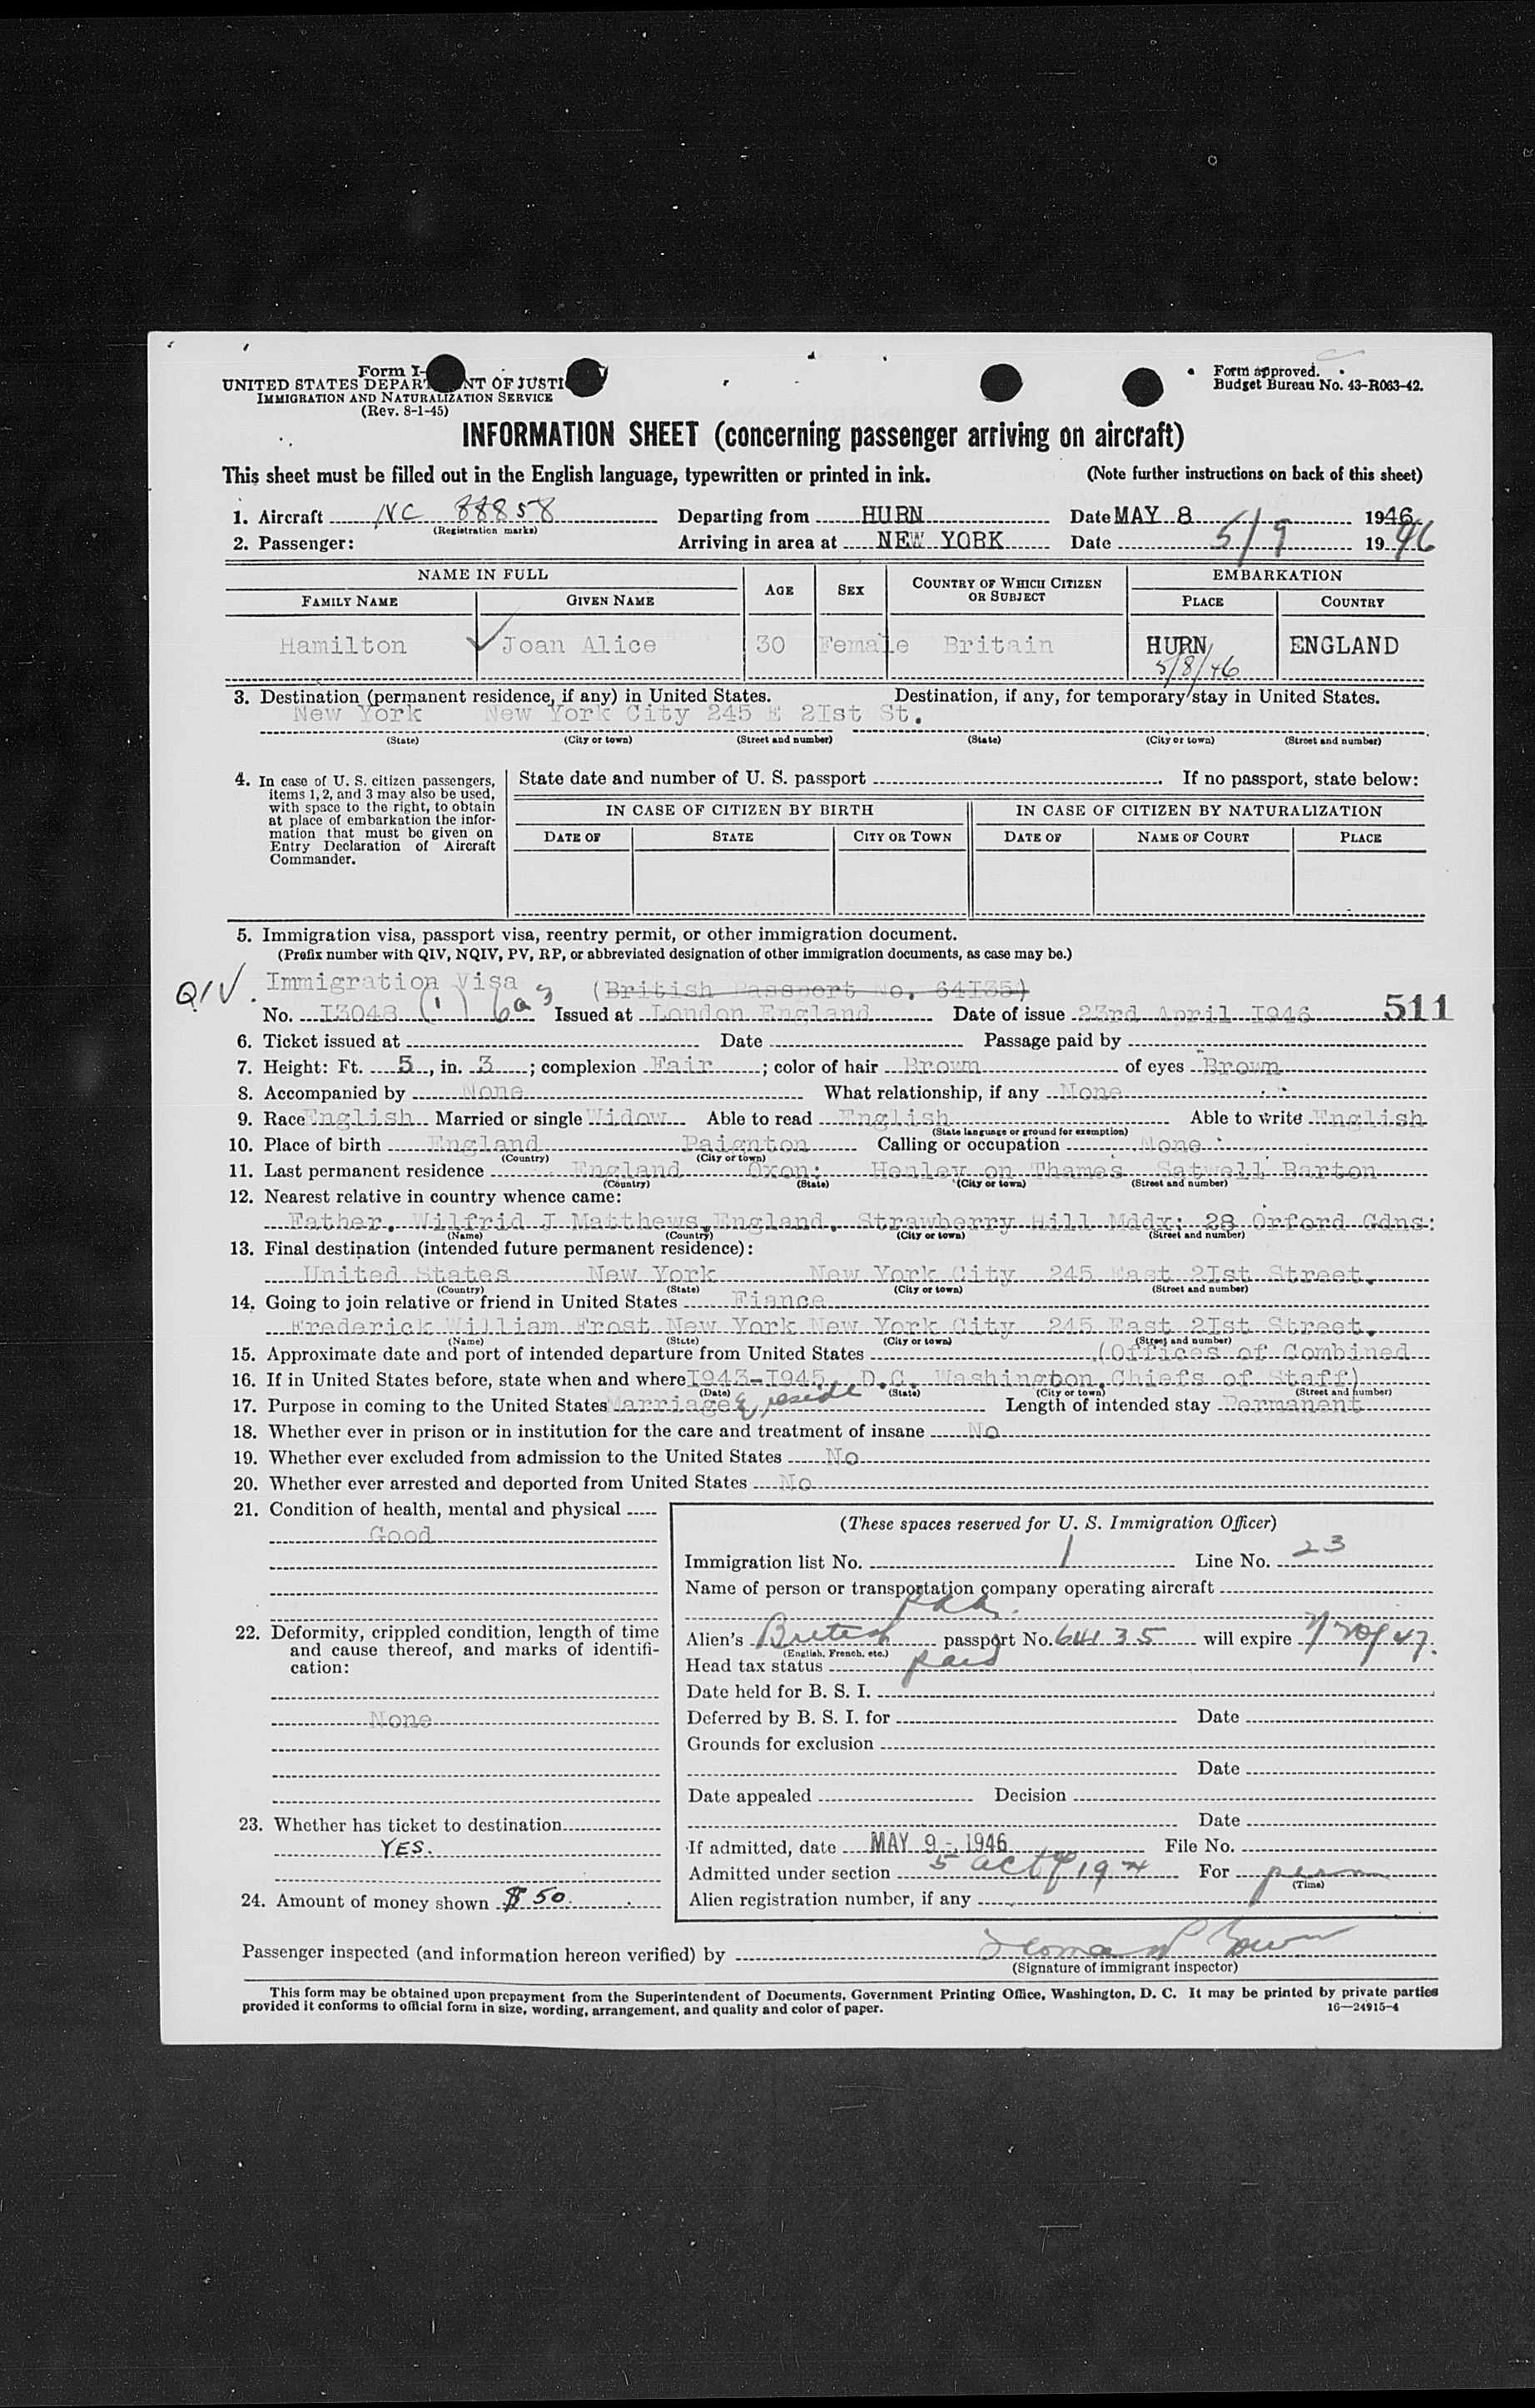 Form I-
UNITED STATES DEPAR NT OF JUSTI
IMMIGRATION AND NATURALIZATION SERVICE
(Rev. 8-1-45)
Form approved.
Budget Bureau No. 43-R063-42.
INFORMATION SHEET (concerning passenger arriving on aircraft)
This sheet must be filled out in the English language, typewritten or printed in ink. (Note further instructions on back of this sheet)
1. Aircraft NC 88858 Departing from HURN Date MAY 8 1946
(Registration marks)
2. Passenger: Arriving in area at NEW YORK Date 5/9 1946
NAME IN FULL AGE SEX COUNTRY OF WHICH CITIZEN OR SUBJECT EMBARKATION
FAMILY NAME GIVEN NAME PLACE COUNTRY
Hamilton Joan Alice 30 Female Britain HURN ENGLAND
5/8/46
3. Destination (permanent residence, if any) in United States. Destination, if any, for temporary stay in United States.
New York New York City 245 E 2Ist St.
(State) (City or town) (Street and number) (State) (City or town) (Street and number)
4. In case of U. S. citizen passengers, items 1, 2, and 3 may also be used, with space to the right, to obtain at place of embarkation the information that must be given on Entry Declaration of Aircraft Commander.
State date and number of U. S. passport If no passport, state below:
IN CASE OF CITIZEN BY BIRTH IN CASE OF CITIZEN BY NATURALIZATION
DATE OF STATE CITY OR TOWN DATE OF NAME OF COURT PLACE
5. Immigration visa, passport visa, reentry permit, or other immigration document.
(Prefix number with QIV, NQIV, PV, RP, or abbreviated designation of other immigration documents, as case may be.)
QIV Immigration Visa (British Passport No. 64I35)
No. I3048 (1) 6a3 Issued at London England Date of issue 23rd April I946 511
6. Ticket issued at Date Passage paid by
7. Height: Ft. 5, in. 3; complexion Fair; color of hair Brown of eyes Brown
8. Accompanied by None What relationship, if any None
9. Race English Married or single Widow Able to read English Able to write English
(State language or ground for exemption)
10. Place of birth England Paignton Calling or occupation None
(Country) (City or town)
11. Last permanent residence England Oxon: Henley on Thames Satwell Barton
(Country) (State) (City or town) (Street and number)
12. Nearest relative in country whence came:
Father. Wilfrid J Matthews, England. Strawberry Hill Mddx: 28 Orford Gdns:
(Name) (Country) (City or town) (Street and number)
13. Final destination (intended future permanent residence):
United States New York New York City 245 East 2Ist Street.
(Country) (State) (City or town) (Street and number)
14. Going to join relative or friend in United States Fiance
Frederick William Frost New York New York City 245 East 2Ist Street.
(Name) (State) (City or town) (Street and number)
15. Approximate date and port of intended departure from United States (Offices of Combined
16. If in United States before, state when and where I943-I945 D.C. Washington. Chiefs of Staff)
(Date) (State) (City or town) (Street and number)
17. Purpose in coming to the United States Marriage & reside Length of intended stay Permanent
18. Whether ever in prison or in institution for the care and treatment of insane No
19. Whether ever excluded from admission to the United States No
20. Whether ever arrested and deported from United States No
21. Condition of health, mental and physical
Good
22. Deformity, crippled condition, length of time and cause thereof, and marks of identification:
None
23. Whether has ticket to destination
YES.
24. Amount of money shown $50.
(These spaces reserved for U. S. Immigration Officer)
Immigration list No. 1 Line No. 23
Name of person or transportation company operating aircraft
PAA.
Alien's British passport No. 64135 will expire
(English, French, etc.)
Head tax status paid
Date held for B. S. I.
Deferred by B. S. I. for Date
Grounds for exclusion
Date
Date appealed Decision
Date
If admitted, date MAY 9 - 1946 File No.
Admitted under section 5 act of 1924 For perm
(Time)
Alien registration number, if any
Passenger inspected (and information hereon verified) by
(Signature of immigrant inspector)
This form may be obtained upon prepayment from the Superintendent of Documents, Government Printing Office, Washington, D. C. It may be printed by private parties
provided it conforms to official form in size, wording, arrangement, and quality and color of paper. 16—24915-4